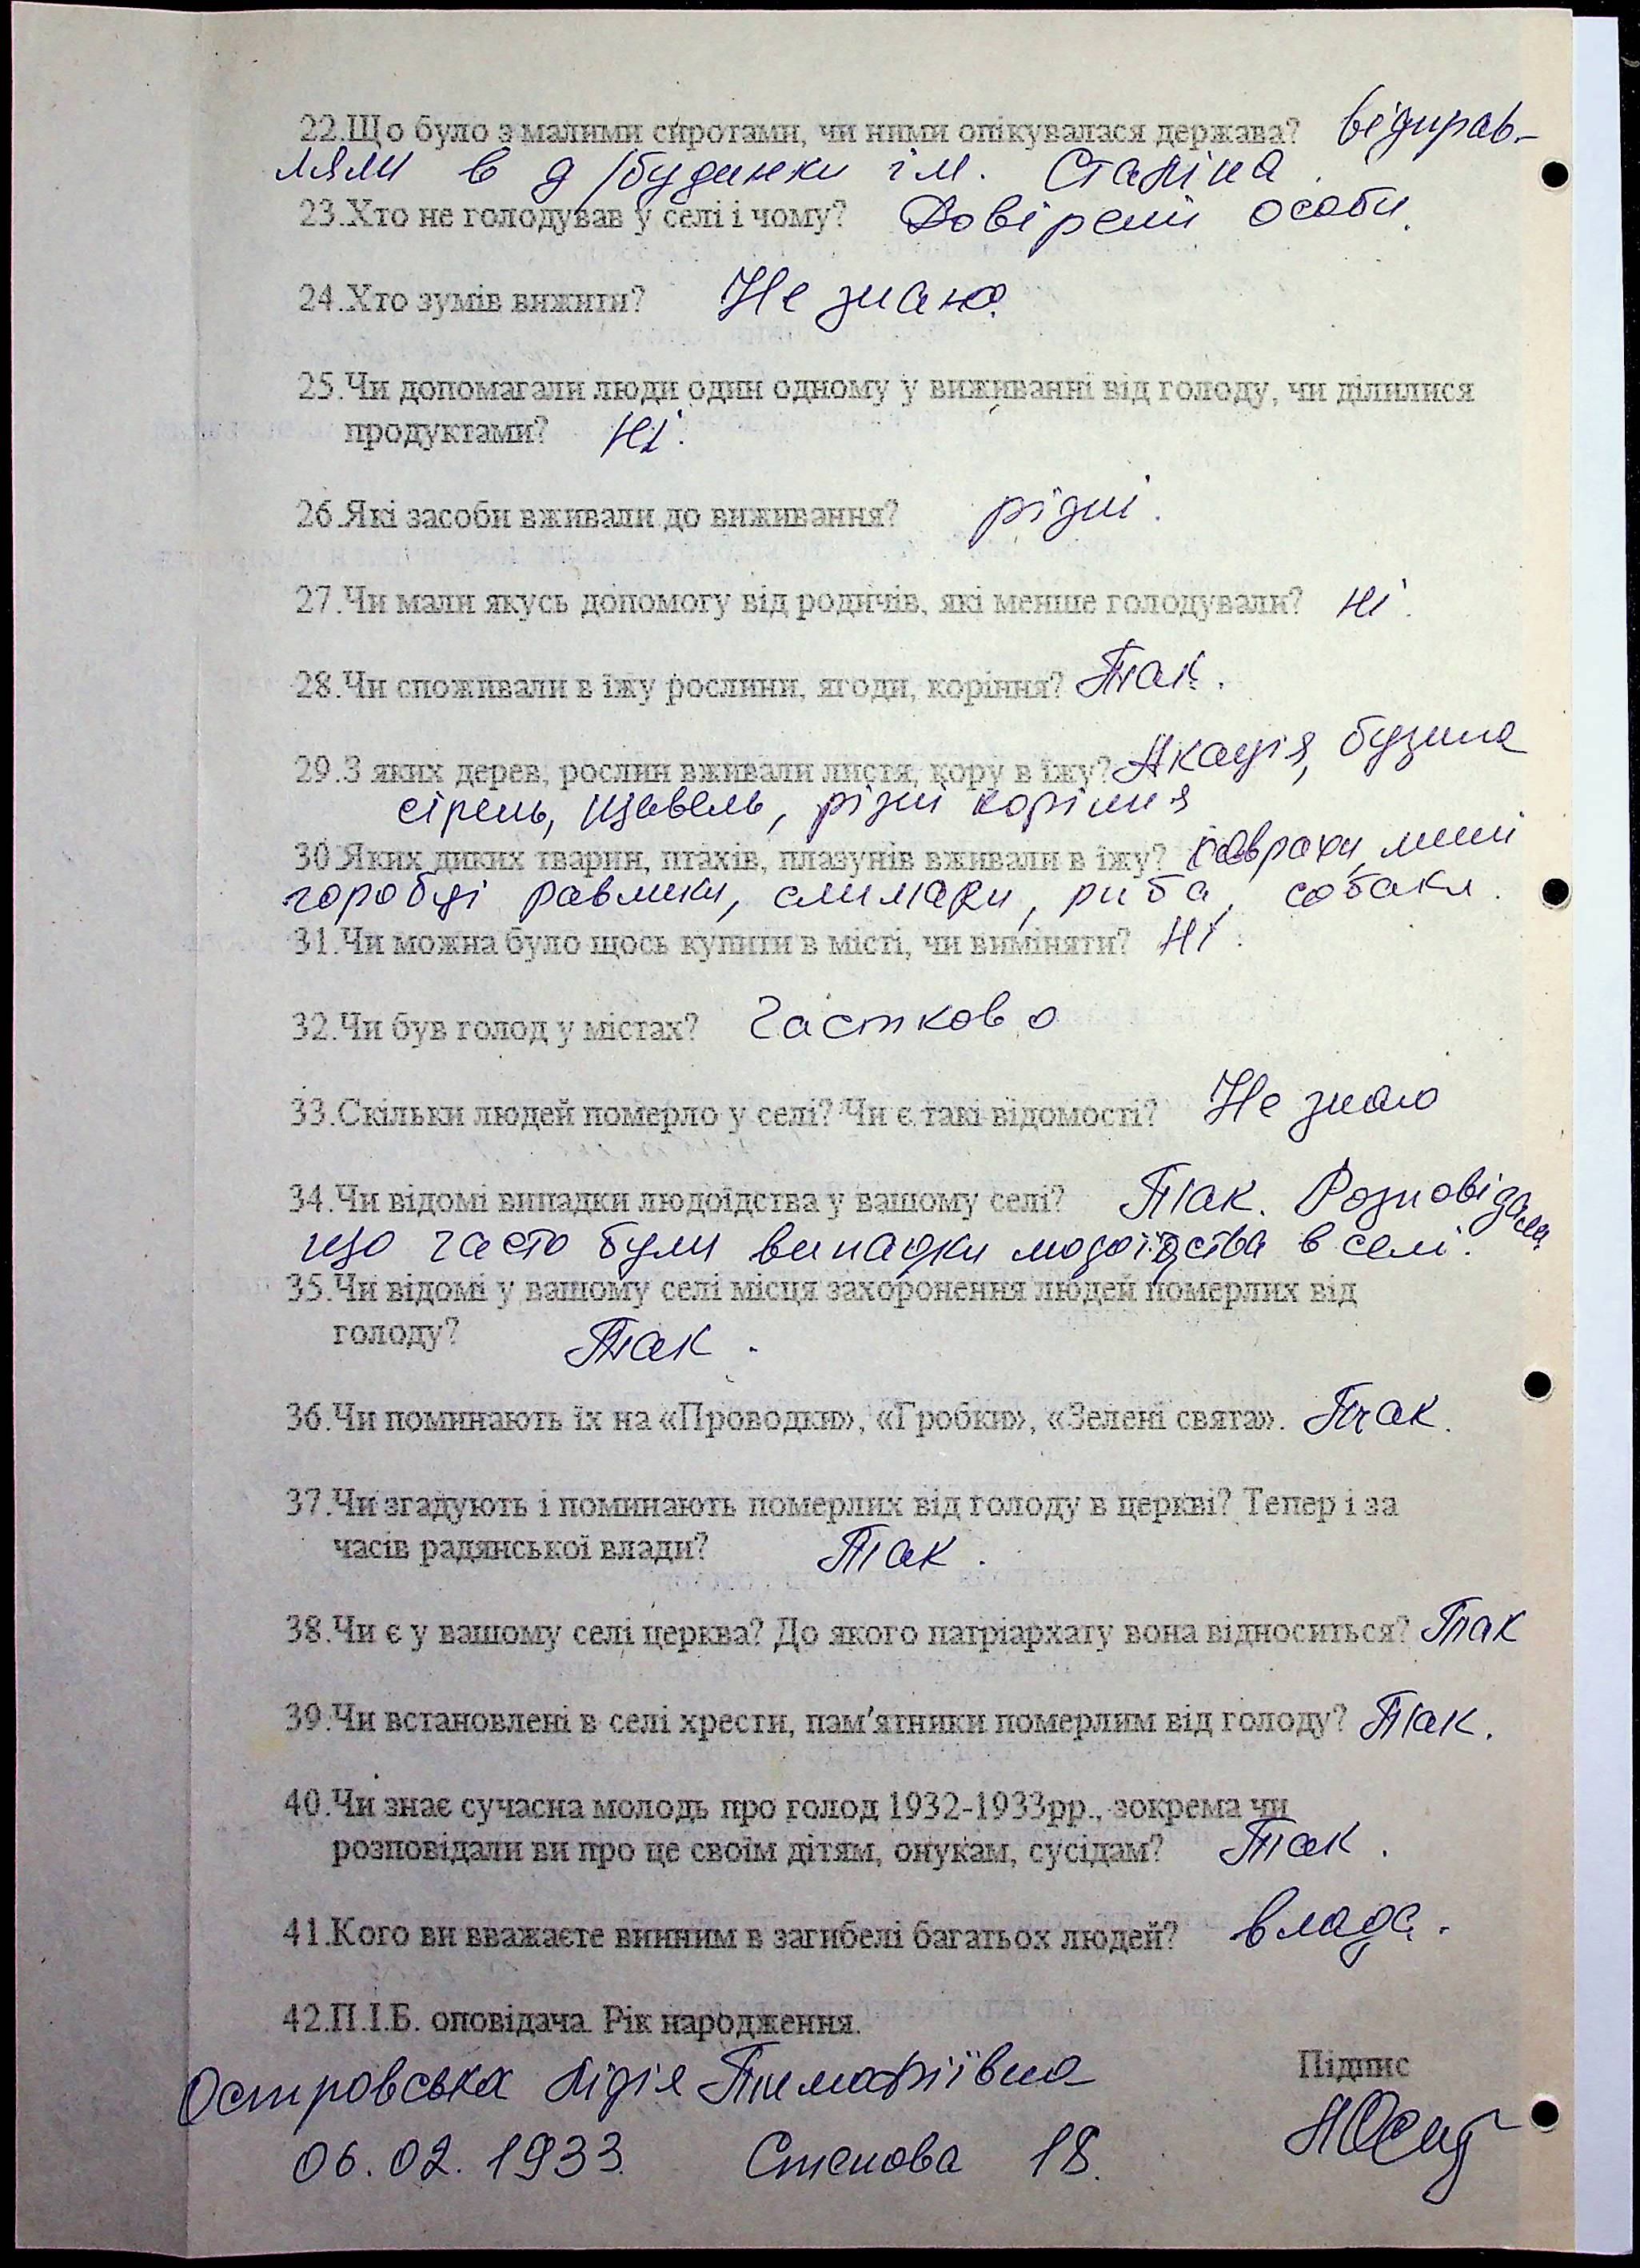 22.Що було з малими сиротами, чи ними опікувалася держава? відправ-
ляли в д/будинки ім. Сталіна.
23.Хто не голодував у селі і чому? Довірені особи.
24.Хто зумів вижити? Не знаю.
25.Чи допомагали люди один одному у виживанні від голоду, чи ділилися
продуктами? Ні.
26.Які засоби вживали до виживання? різні.
27.Чи мали якусь допомогу від родичів, які менше голодували? Ні.
28.Чи споживали в їжу рослини, ягоди, коріння? Так.
29.З яких дерев, рослин вживали листя, кору в їжу? Акація, бузина
сірень, щавель, різні коріння
30.Яких диких тварин, птахів, плазунів вживали в їжу? ховрахи, миші
горобці равлики, слимаки, риба, собаки.
31.Чи можна було щось купити в місті, чи виміняти? Ні.
32.Чи був голод у містах? Частково
33.Скільки людей померло у селі? Чи є такі відомості? Не знаю
34.Чи відомі випадки людоїдства у вашому селі? Так. Розповідали
що часто були випадки людоїдства в селі.
35.Чи відомі у вашому селі місця захоронення людей померлих від
голоду? Так.
36.Чи поминають їх на «Проводки», «Гробки», «Зелені свята». Так.
37.Чи згадують і поминають померлих від голоду в церкві? Тепер і за
часів радянської влади? Так.
38.Чи є у вашому селі церква? До якого патріархату вона відноситься? Так
39.Чи встановлені в селі хрести, пам'ятники померлим від голоду? Так.
40.Чи знає сучасна молодь про голод 1932-1933рр., зокрема чи
розповідали ви про це своїм дітям, онукам, сусідам? Так.
41.Кого ви вважаєте винним в загибелі багатьох людей? влада.
42.П.І.Б. оповідача. Рік народження.
Островська Лідія
Підпис
06.02.1933 Степова 18.